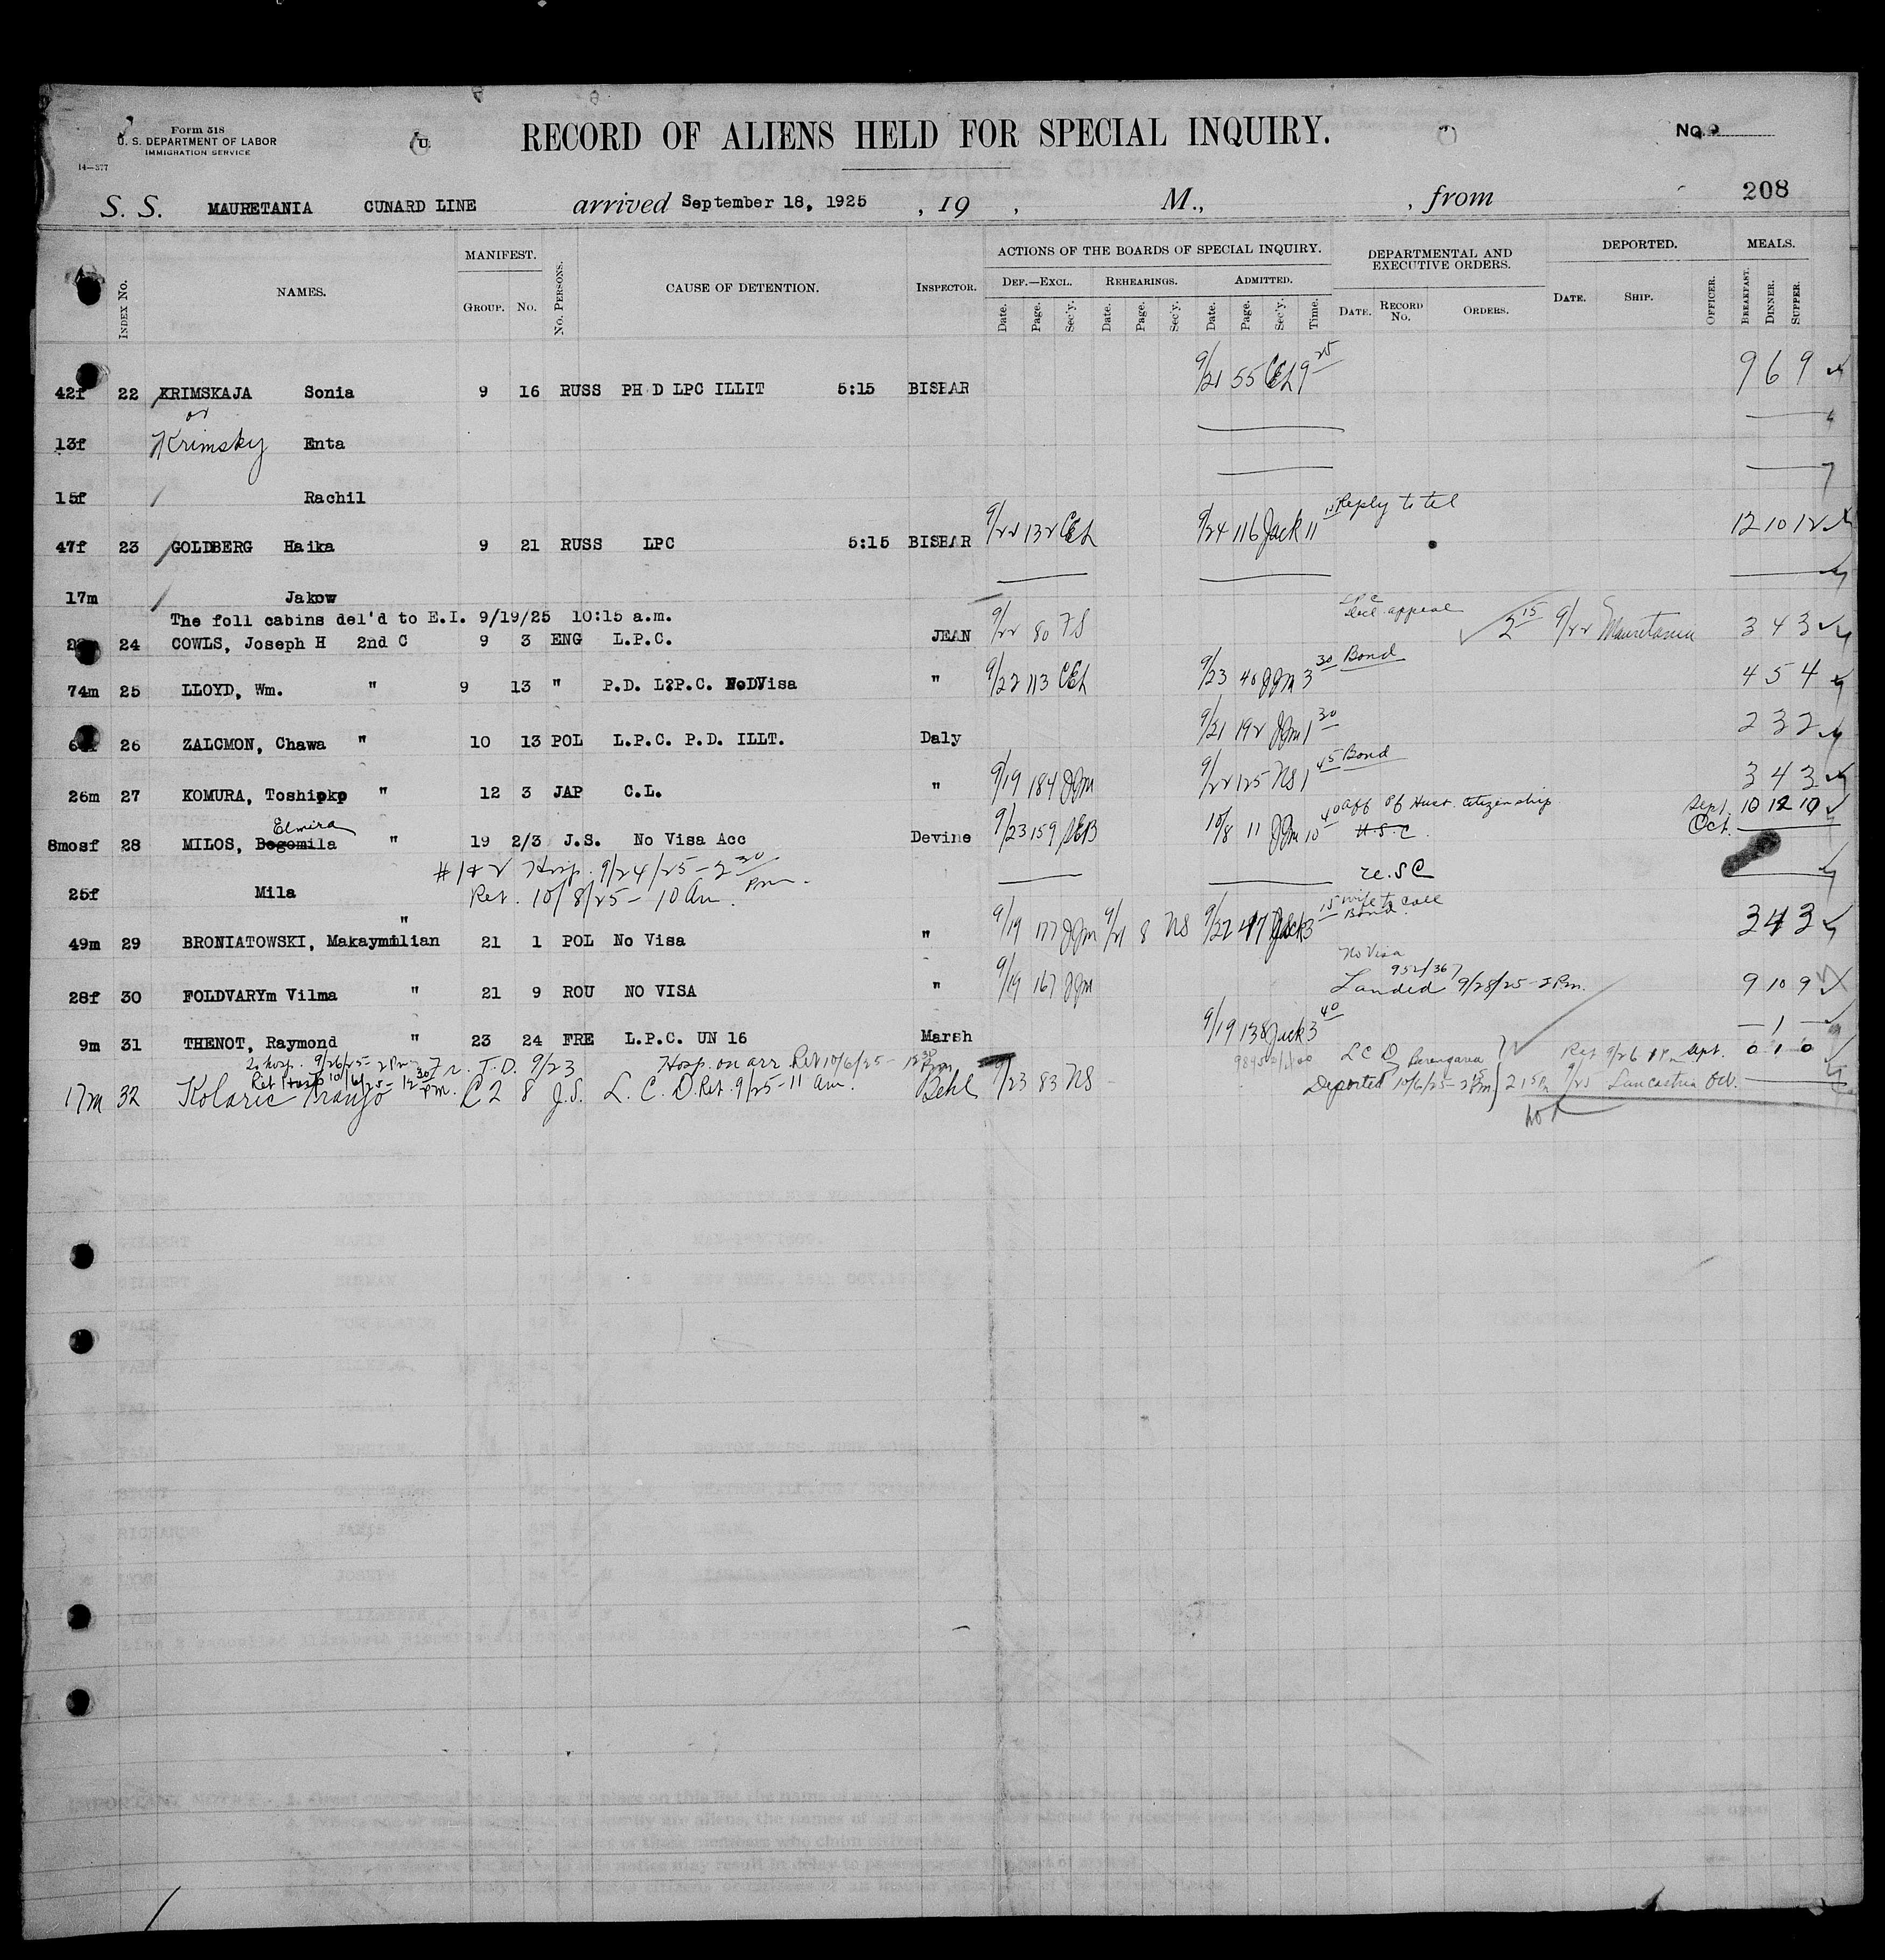 Form 518
U. S. DEPARTMENT OF LABOR
IMMIGRATION SERVICE
14—577
RECORD OF ALIENS HELD FOR SPECIAL INQUIRY.
No.
208
S. S. MAURETANIA CUNARD LINE arrived September 18, 1925 , 19 , M., , from
INDEX No. NAMES. MANIFEST. GROUP. No. No. PERSONS. CAUSE OF DETENTION. INSPECTOR. ACTIONS OF THE BOARDS OF SPECIAL INQUIRY. DEF.—EXCL. Date. Page. Sec'y. REHEARINGS. Date. Page. Sec'y. ADMITTED. Date. Page. Sec'y. Time. DEPARTMENTAL AND EXECUTIVE ORDERS. DATE. RECORD No. ORDERS. DEPORTED. DATE. SHIP. OFFICER. MEALS. BREAKFAST. DINNER. SUPPER.
42f 22 KRIMSKAJA Sonia 9 16 RUSS PH D LPC ILLIT 5:15 BISHAR 9/21 55 CEL 9 25 9 6 9
or
13f Krimsky Enta
15f Rachil
47f 23 GOLDBERG Haika 9 21 RUSS LPC 5:15 BISHAR 9/22 132 CEL 9/24 116 Jack 11 15 Reply to tel 12 10 12
17m Jakow
The foll cabins del'd to E.I. 9/19/25 10:15 a.m.
24 COWLS, Joseph H 2nd C 9 3 ENG L.P.C. JEAN 9/22 80 FS appeal 2 15 9/22 Mauretania 3 4 3
74m 25 LLOYD, Wm. " 9 13 " P.D. L?P.C. NoDVisa " 9/22 113 CEL 9/23 40 JJM 3 30 Bond 4 5 4
26 ZALCMON, Chawa " 10 13 POL L.P.C. P.D. ILLT. Daly 9/21 192 JJM 1 30 2 3 2
26m 27 KOMURA, Toshipkp " 12 3 JAP C.L. " 9/19 184 JJM 9/22 125 NS 1 45 Bond 3 4 3
Elmira
8mosf 28 MILOS, Bogomila " 19 2/3 J.S. No Visa Acc Devine 9/23 159 10/8 11 JJM 10 40 aff of Husb. Citizenship U.S.C. Sept. 10 12 10 Oct.
#1&2 Hosp. 9/24/25 - 2 30 Pm.
25f Mila Ret. 10/8/25 - 10 am. U.S.C
49m 29 BRONIATOWSKI, Makaymilian " 21 1 POL No Visa " 9/19 177 JJM 9/21 8 NS 9/22 47 Jack 3 15 wife to call Bond 3 4 3
No Visa
28f 30 FOLDVARYm Vilma " 21 9 ROU NO VISA " 9/19 167 JJM 952/367 Landed 9/28/25 - 2 Pm. 9 10 9
9m 31 THENOT, Raymond " 23 24 FRE L.P.C. UN 16 Marsh 9/19 138 Jack 3 40 — 1 —
To hosp. 9/26/25 - 2 Pm Fr. T.D. 9/23 Hosp. on arr. Ret 10/6/25 - 12 30 Pm L C D Berengaria Ret 9/26 Sept. 0 1 0
Ret Hosp 10/6/25 - 12 30 Pm.
17m 32 Kolaric Franjo C2 8 J.S. L. C. D. Ret. 9/25 - 11 am. 9/23 83 NS Deported 10/6/25 - 2 15 Pm 2 15 Pm 9/25 Lancastria Oct.
not